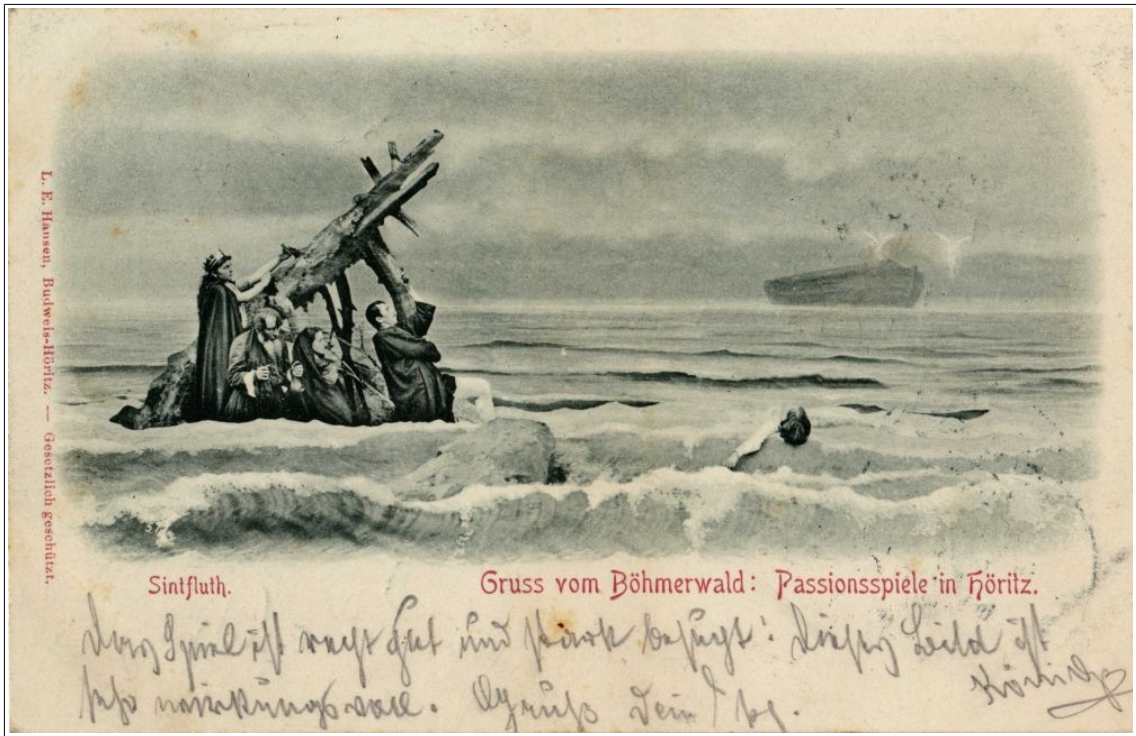 L. E. Hansen, Budweis-Höritz. — Gesetzlich geschützt.
Sintfluth.
Gruss vom Böhmerwald: Passionsspiele in Höritz.
Das Spiel ist recht gut und stark besucht! Dieses Bild ist
sehr wirkungsvoll. Gruß Dein